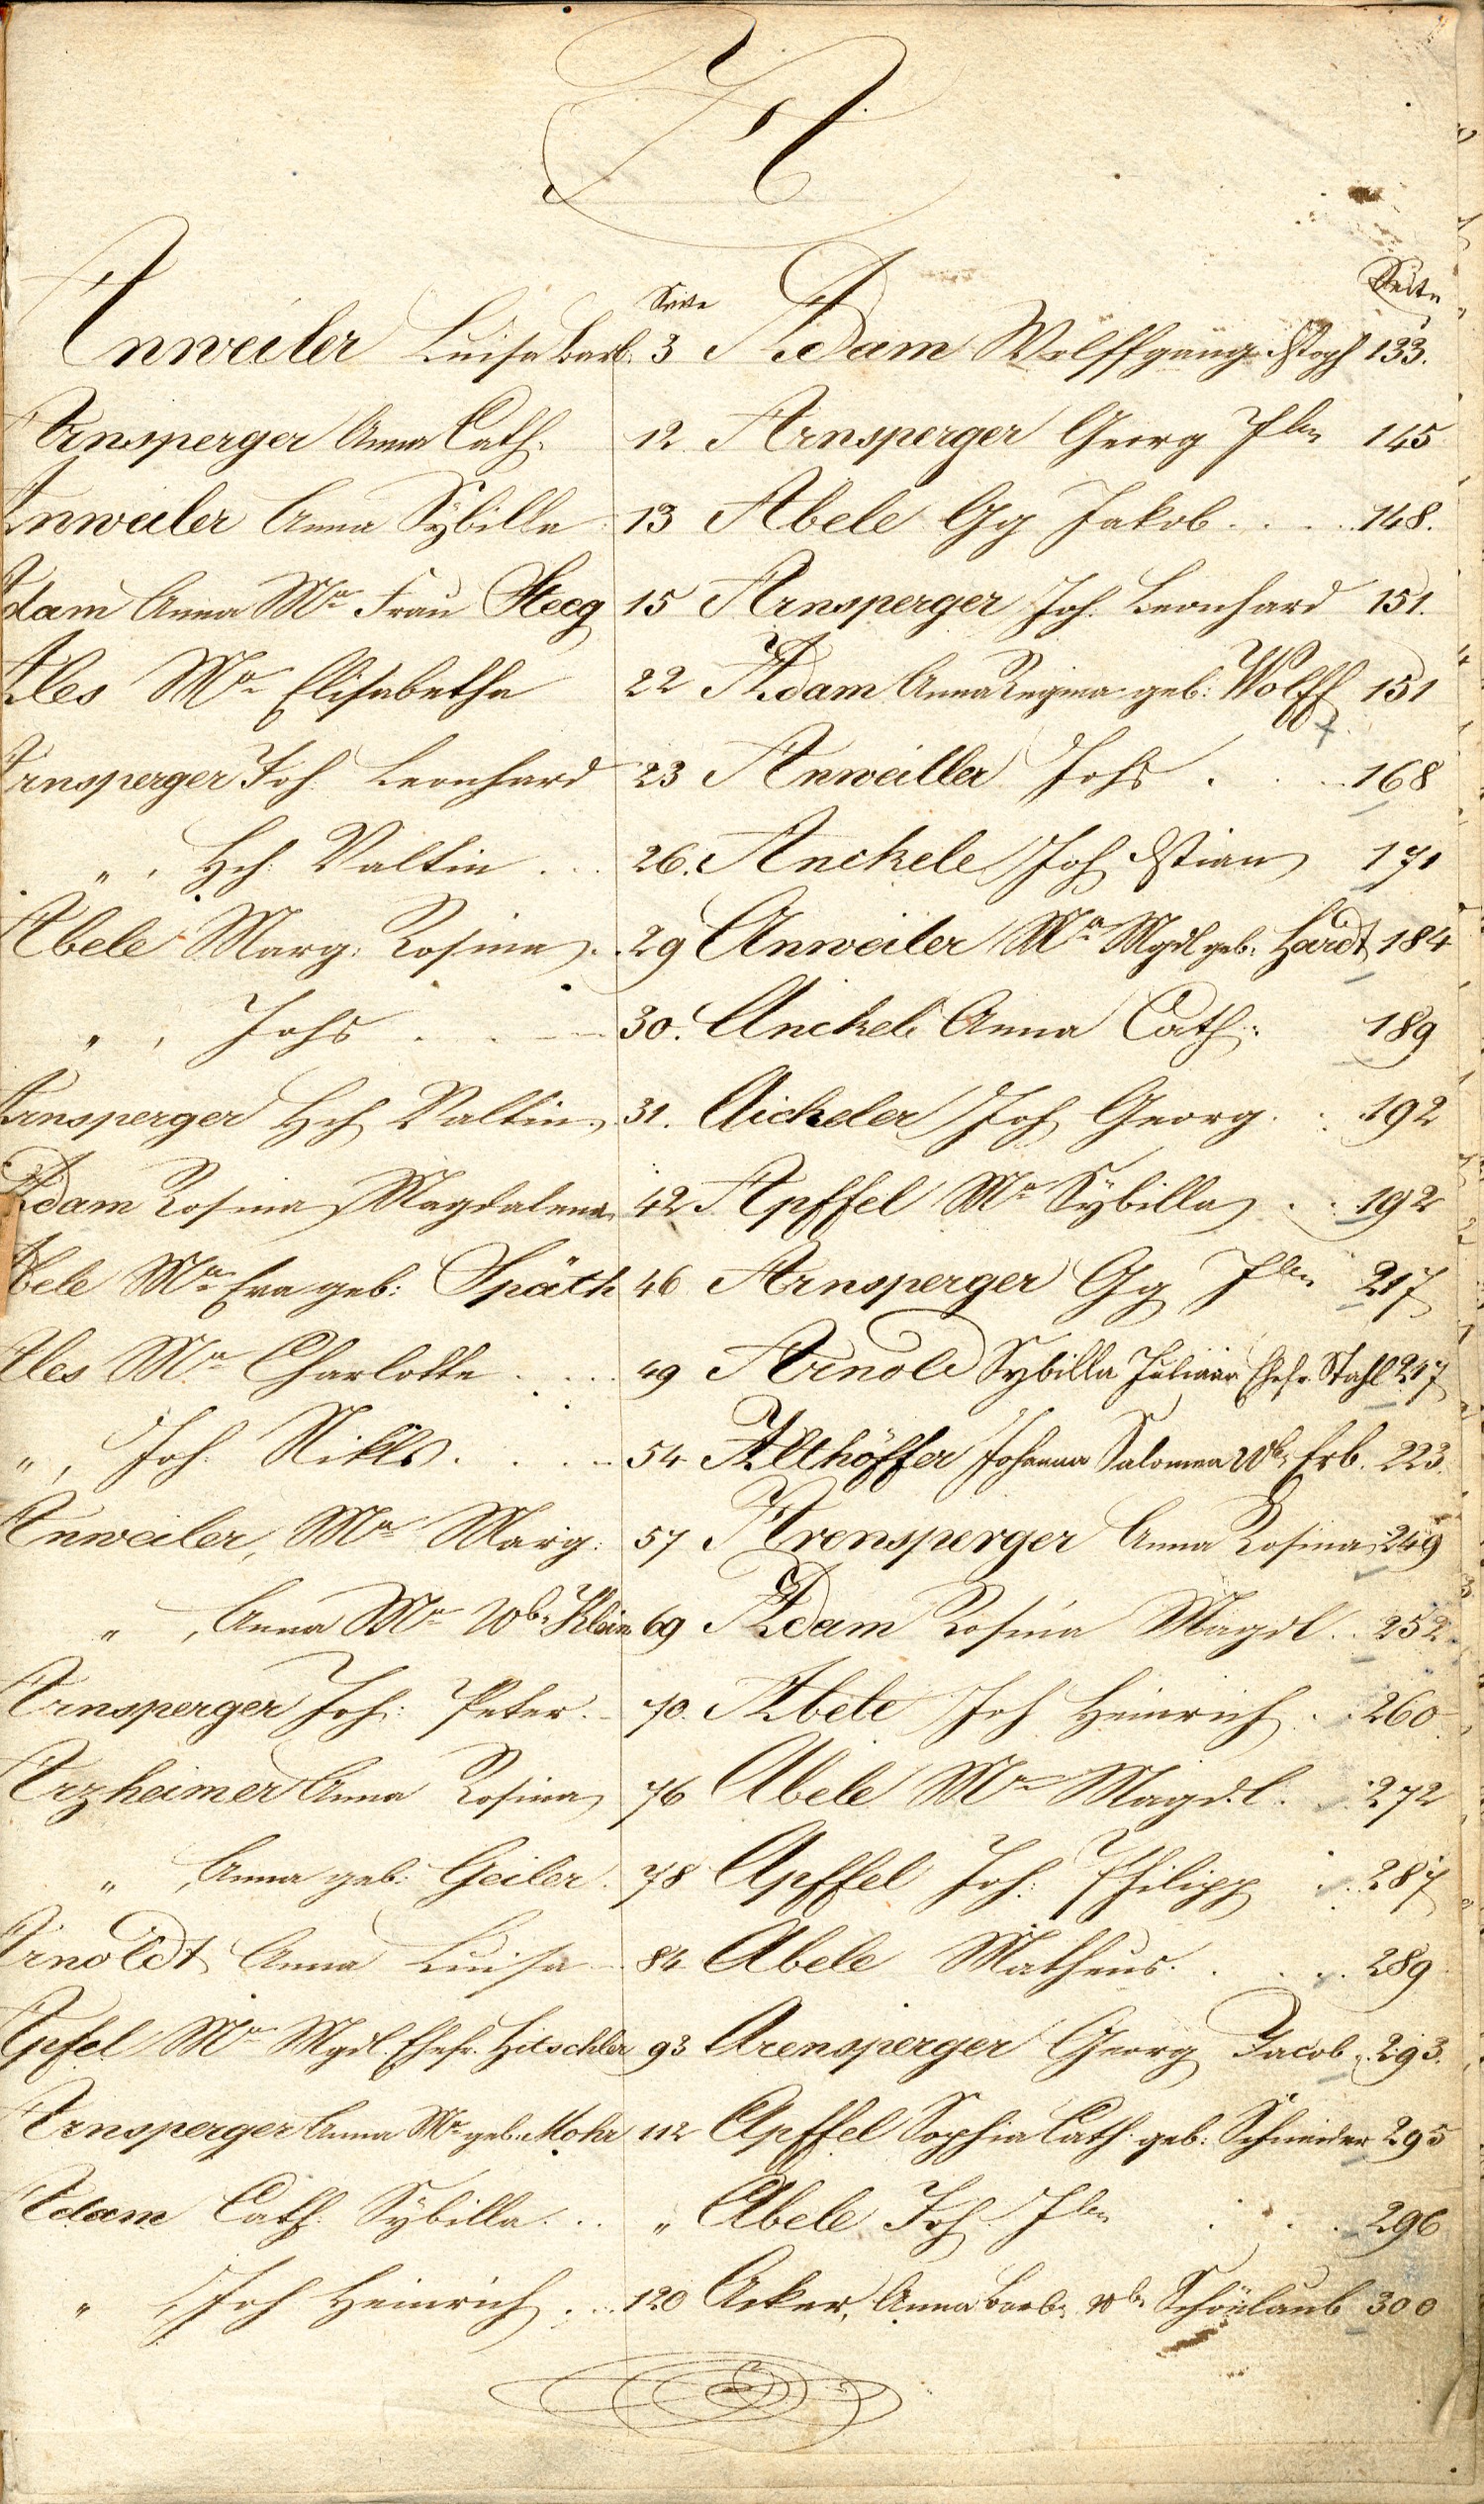 A
Seite
Anweiler Luisa Barb. 3
Arnsperger Anna Cath. 12
Anweiler Anna Sÿbilla 13
Adam Anna Ma Frau Steeg 15
Ales Ma Elisabetha 22
Arnsperger Joh. Leonhard 23
" , Hch. Valtin . . . 26.
Abele Marg. Rosina . . 29
" , Johs . . . 30.
Arnsperger Hch Valtin. 31.
Adam Rosina Magdalena 42
Abele Ma Eva geb: Späth 46
Ales Ma Charlotte . . . . 49
" , Joh. Nikls. . . . 54
Anweiler, Ma Marg. 57
" , Anna Ma Wbr Klein 69
Arnsperger Joh: Peter. 70.
Arzheimer Anna Rosina 76
" , Anna geb: Geiler. 78
Arnoldt Anna Luisa 84
Apfel Ma Mgdl. Ehefr. Hitschler 93
Arnsperger Anna Ma geb. Mohr 112
Adam Cath. Sÿbilla . . . "
" , Joh Heinrich . . . 120
Seite
Adam Wolffgang Xstoph 133.
Arnsperger Georg Jb 145
Abele Gg Jakob . . . . 148.
Arnsperger Joh. Leonhard 151.
Adam Anna Regina geb: Wolff 151
Anweiller Johs . . . 168
Anckele Joh Xstian 171
Anweiler Ma Mgdl geb. Hardt 184
Anckele Anna Cath: 189
Aickeler Joh Georg . . 192
Apffel Ma Sÿbilla . . 192
Arnsperger Gg Jb 217
Arnold Sybilla Ehefr. Stahl 217
Althöffer Johanna Salomea Wb Erb. 223.
Arensperger Anna Rosina 249
Adam Rosina Magdl . . 252.
Abele Joh Heinrich . . 260.
Abele Ma Magd.l. . . 272
Apffel Joh: Philipp . . 287
Abele Matheus. . . . 289
Arensperger Georg Jacob . 293.
Apffel Sophia Cath. geb: Schneider 295
Abele Joh. Jb . . . 296
Acker, Anna Barb. Wb Schönlaub 300